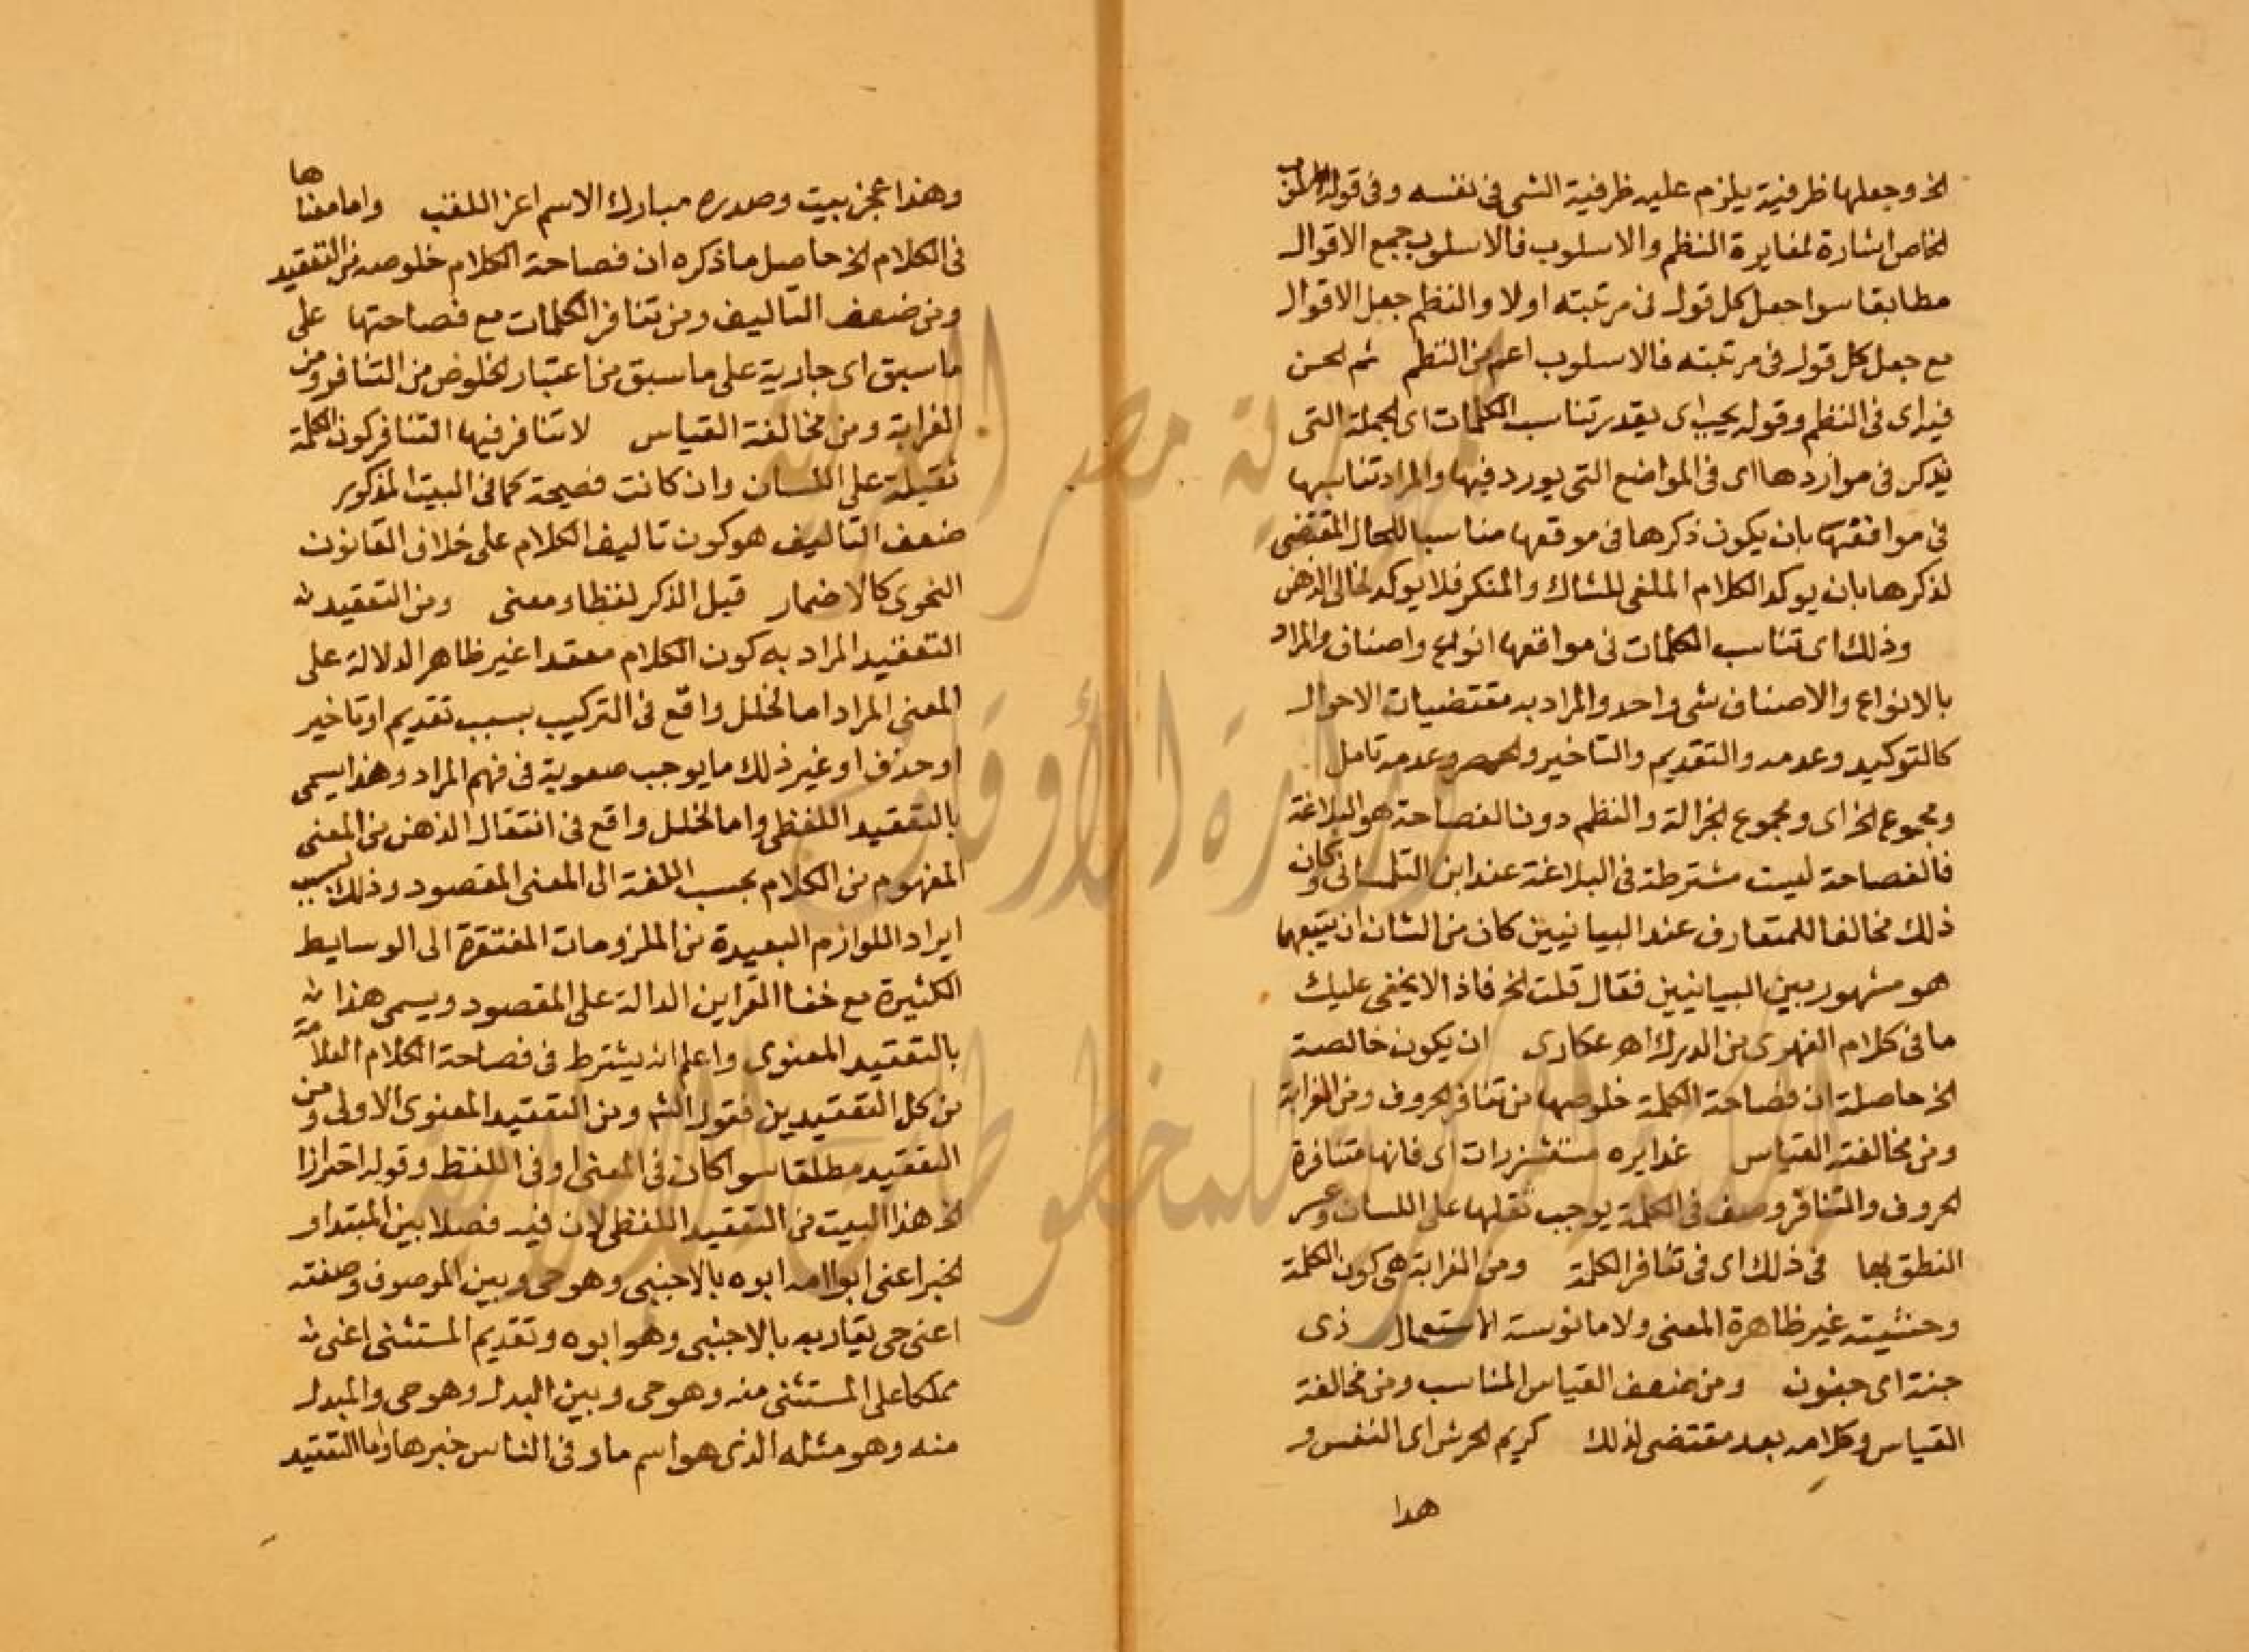 الخ وجعلها ظرفية يلزم عليه ظرفية الشى فى نفسه وفى قوله
الخاص اشارة لمغايرة النظم والاسلوب فالاسلوب جمع الاقوال
مطابقا سوا جعل كل قول فى مرتبته اولا والنظم جعل الاقوال
مع جعل كل قول فى مرتبته فالاسلوب اعم من النظم ثم لحسن
فيه اى فى النظم وقوله يجيب اى يقدر تناسب الكلمات اى الجملة التى
يذكر فى مواردها اى فى المواضع التى يورد فيها والمراد تناسبها
فى موافقتها بان يكون ذكرها فى موقعها مناسبا للحال المقتضى
لذكرها بان يوكد الكلام الملقى للشاك والمنكر فلا يوكد لخالى الذهن
وذلك اى تناسب الكلمات فى مواقعها انواع واصناف والمراد
بالانواع والاصناف شى واحد والمراد به مقتضيات الاحوال
كالتوكيد وعدمه والتقديم والتاخير والحصر وعدمه تامل
ومجموع الخ اى ومجموع الجزالة والنظم دون الفصاحة هو البلاغة
فالفصاحة ليست مشترطة فى البلاغة عند ابن التلمسانى وكان
ذلك مخالفا للمتعارف عند البيانيين كان من الشان ان يتبع ما
هو مشهور بين البيانيين فقال قلت الخ فاذا لا يخفى عليك
ما فى كلام الفهرى من الدرك اه عكارى ان يكون خالصة
الخ حاصله ان فصاحة الكلمة خلوصها من تنافر الحروف ومن الغرابة
ومن مخالفة القياس غدايره مستشزرات اى فانها متنافرة
الحروف والتنافر وصف فى الكلمة يوجب ثقلها على اللسان وعسر
النطق بها فى ذلك اى فى تنافر الكلمة ومن الغرابة هى كون الكلمة
وحشيته غير ظاهرة المعنى ولا مانوسة الاستعمال ذى
جنة اى جنون ومن ضعف القياس المناسب ومن مخالفة
القياس وكلامه بعد مقتضى لذلك كريم الجرشى اى النفس و
هدا
وهذا عجز بيت وصدره مبارك الاسم اعز اللقب واما معناها
فى الكلام الخ حاصل ما ذكره ان فصاحة الكلام خلوصه من التعقيد
ومن ضعف التاليف ومن تنافر الكلمات مع فصاحتها على
ما سبق اى جارية على ما سبق من اعتبار الخلوص من التنافر ومن
الغرابة ومن مخالفة القياس لا تنافر فيها التنافر كون الكلمة
ثقيلة على اللسان وان كانت فصيحة كما فى البيت المذكور
ضعف التاليف هو كون تاليف الكلام على خلاف القانون
النحوى كالاضمار قبل الذكر لفظا ومعنى ومن التعقيد
التعقيد المراد به كون الكلام معقدا غير ظاهر الدلالة على
المعنى المراد اما لخلل واقع فى التركيب بسبب تقديم او تاخير
او حذف او غير ذلك ما يوجب صعوبة فى فهم المراد وهذا يسمى
بالتعقيد اللفظى واما لخلل واقع فى انتقال الذهن من المعنى
المفهوم من الكلام بحسب اللغة الى المعنى المقصود وذلك بسبب
ايراد اللوازم البعيدة من الملزومات المفتقرة الى الوسايط
الكثيرة مع خفا القراين الدالة على المقصود ويسمى هذا
بالتعقيد المعنوى واعلم انه يشترط فى فصاحة الكلام السلامة
من كل التعقيدين فقول الشم ومن التعقيد المعنوى الاولى ومن
التعقيد مطلقا سوا كان فى المعنى او فى اللفظ وقوله احترازا
الخ هذا البيت من التعقيد اللفظى لان فيه فصلا بين المبتدا و
الخبر اعنى ابو امه ابوه بالاجنبى وهو حى وبين الموصوف وصفته
اعنى حى يقاربه بالاجنبى وهو ابوه وتقديم المستثنى اعنى
مملكا على المستثنى منه وهو حى وبين البدل وهو حى والمبدل
منه وهو مثله الذى هو اسم ما وفى الناس خبرها واما التعقيد